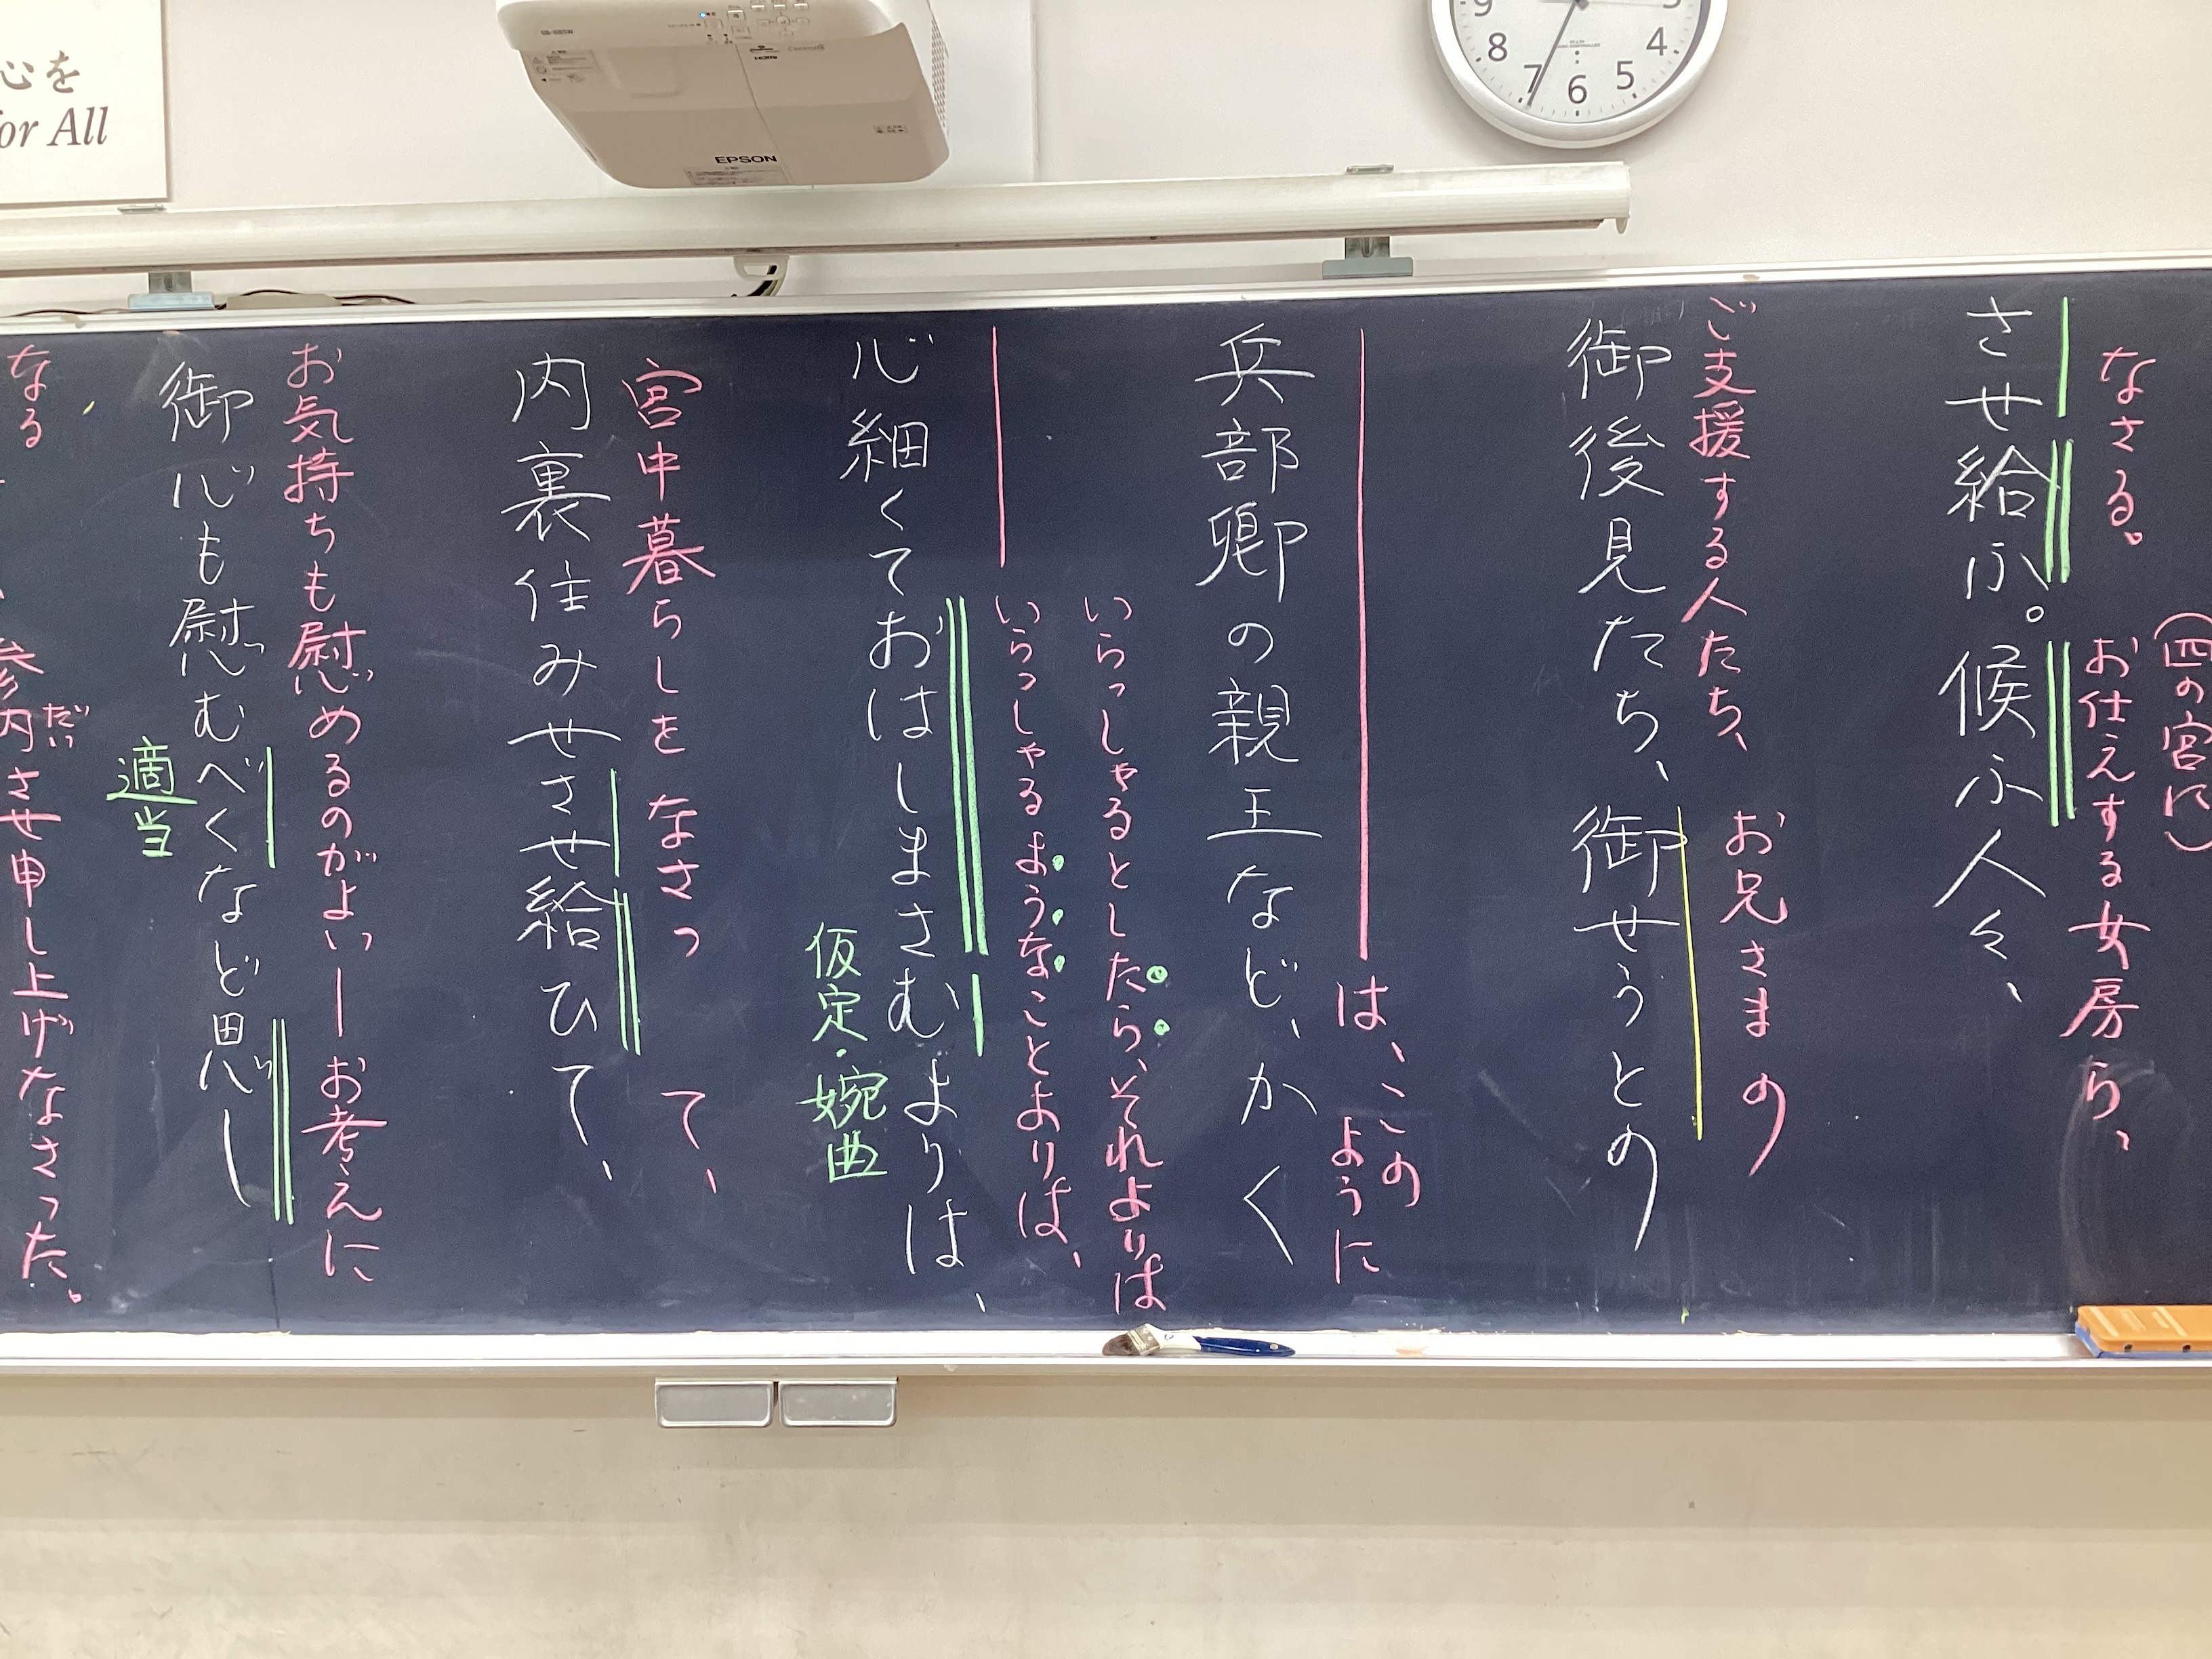 心を
for All
EPSON
HDMI
9
8
7
6
5
4
3
（四の宮に）
なさる。 お仕えする女房ら、
させ給ふ。候ふ人々、
お兄さまの
ご支援する人たち、
御後見たち、御せうとの
は、この
ように
兵部卿の親王など、かく
いらっしゃるとしたら、それよりは
いらっしゃるようなことよりは、
心細くておはしまさむよりは、
仮定・婉曲
宮中暮らしを なさっ て、
内裏住みせさせ給ひて、
お気持ちも慰めるのがよい―お考えに
御心も慰むべくなど思し
適当
だい
なる 参内させ申し上げなさった。